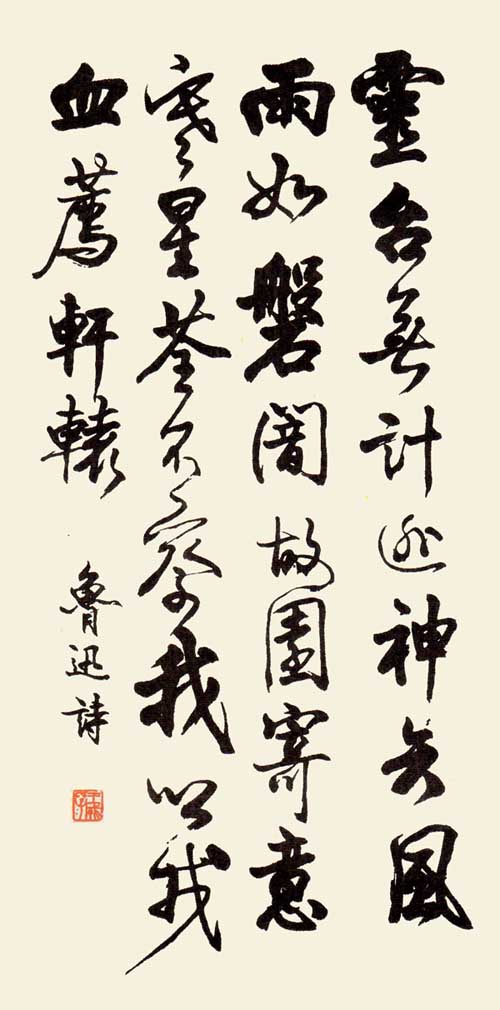 靈台無計逃神矢風
雨如磐闇故園寄意
寒星荃不察我以我
血薦軒轅
魯迅詩